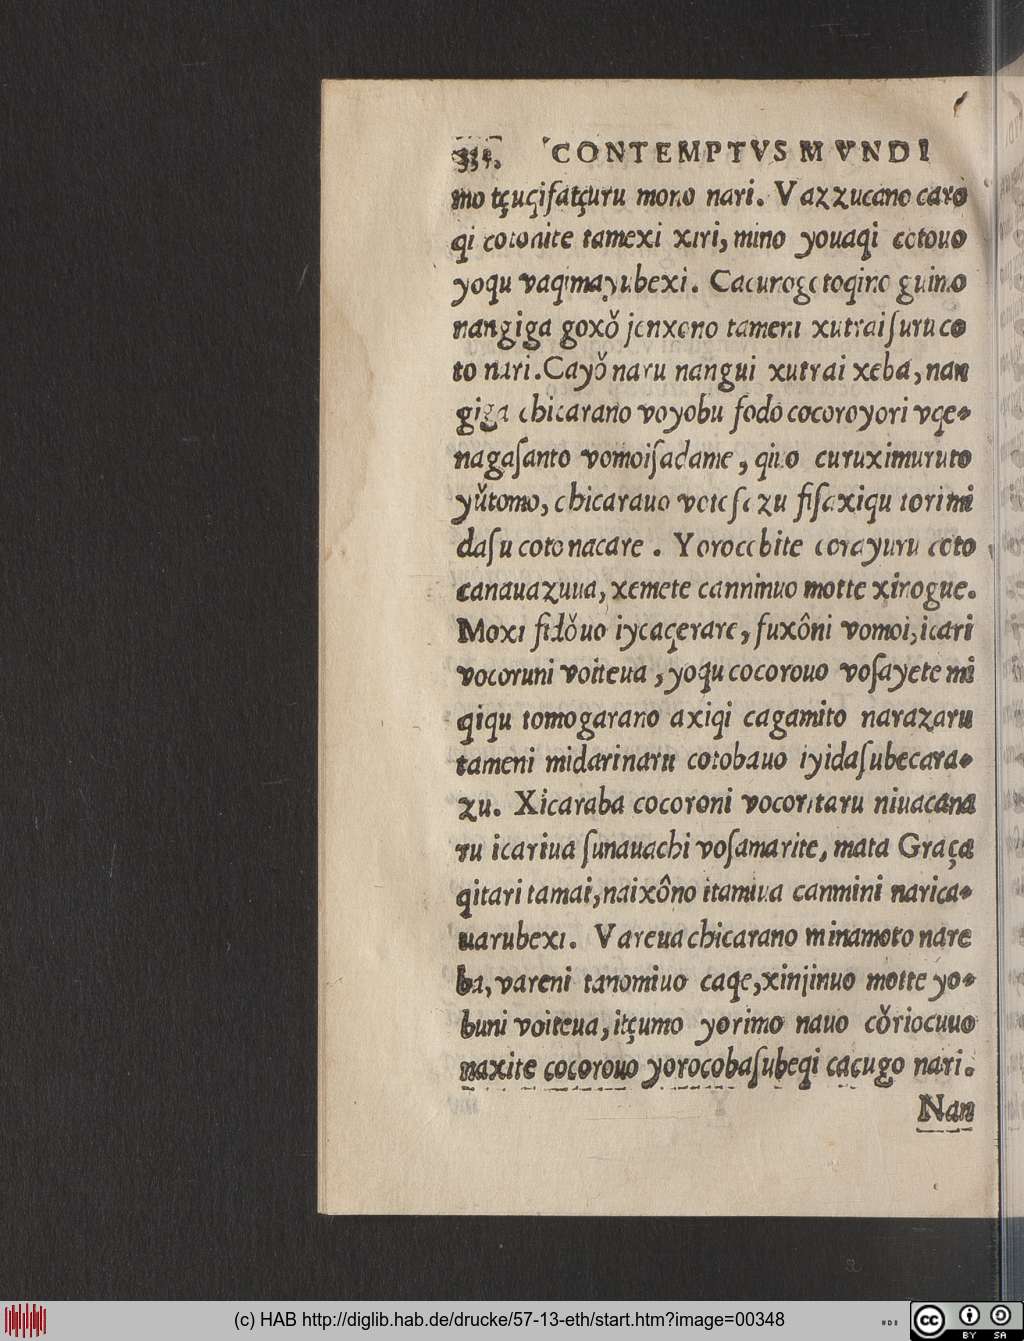 CONTEMPTVS MVNDI
mo tçuqiſatçuru mono nari. Vazzucano caro
qi cotonite tamexi xiri, mino youaqi cotouo
yoqu vaqimayubexi. Cacurogotoqino guino
nangiga goxǒ jenxeno tameni xutrai ſuru co
to nari. Cayǒ naru nangui xutrai xeba, nan
giga chicarano voyobu fodo cocoroyori vqe-
nagaſanto vomoiſadame, qino curuximuruto
yǔtomo, chicarauo votoſezu fiſaxiqu torimi
daſu coto nacare. Yorocobite corayuru coto
canauazuua, xemete canninuo motte xinogue.
Moxi fidǒuo iycaqerare, fuxôni vomoi, icari
vocoruni voiteua, yoqu cocorouo voſayete mi
qiqu tomogarano axiqi cagamito narazaru
tameni midarinaru cotobauo iyidaſubecara-
zu. Xicaraba cocoroni vocoritaru niuacana
ru icariua ſunauachi voſamarite, mata Graça
qitari tamai, naixôno itamiua canmini narica-
uarubexi. Vareua chicarano minamoto nare
ba, vareni tanomiuo caqe, xinjinuo motte yo-
buni voiteua, itçumo yorimo nauo cǒriocuuo
naxite cocorouo yorocobaſubeqi cacugo nari.
Nan
(c) HAB http://diglib.hab.de/drucke/57-13-eth/start.htm?image=00348
cc
BY SA